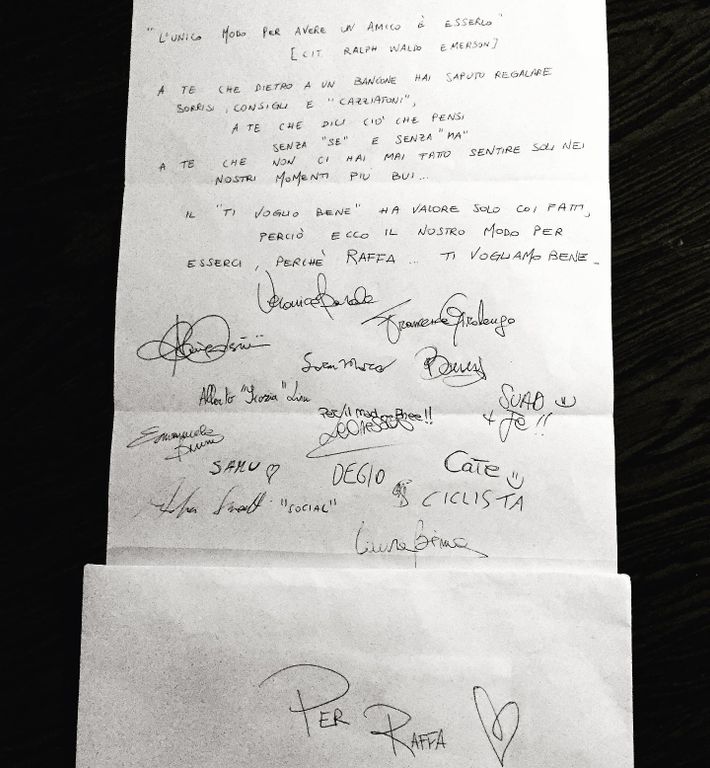 "L'UNICO MODO PER AVERE UN AMICO È ESSERLO"
[CIT. RALPH WALDO EMERSON]
A TE CHE DIETRO A UN BANCONE HAI SAPUTO REGALARE
SORRISI, CONSIGLI E "CAZZIATONI",
A TE CHE DICI CIÒ CHE PENSI
SENZA "SE" E SENZA "MA"
A TE CHE NON CI HAI MAI FATTO SENTIRE SOLI NEI
NOSTRI MOMENTI PIÙ BUI...
IL "TI VOGLIO BENE" HA VALORE SOLO COI FATTI,
PERCIÒ ECCO IL NOSTRO MODO PER
ESSERCI, PERCHÈ RAFFA... TI VOGLIAMO BENE
Veronica
Francesca
Alberto
SUAD
+ JE!!
Emmanuela
SAMU
DEGIO
CATE
"SOCIAL"
CICLISTA
Laura
PER RAFFA